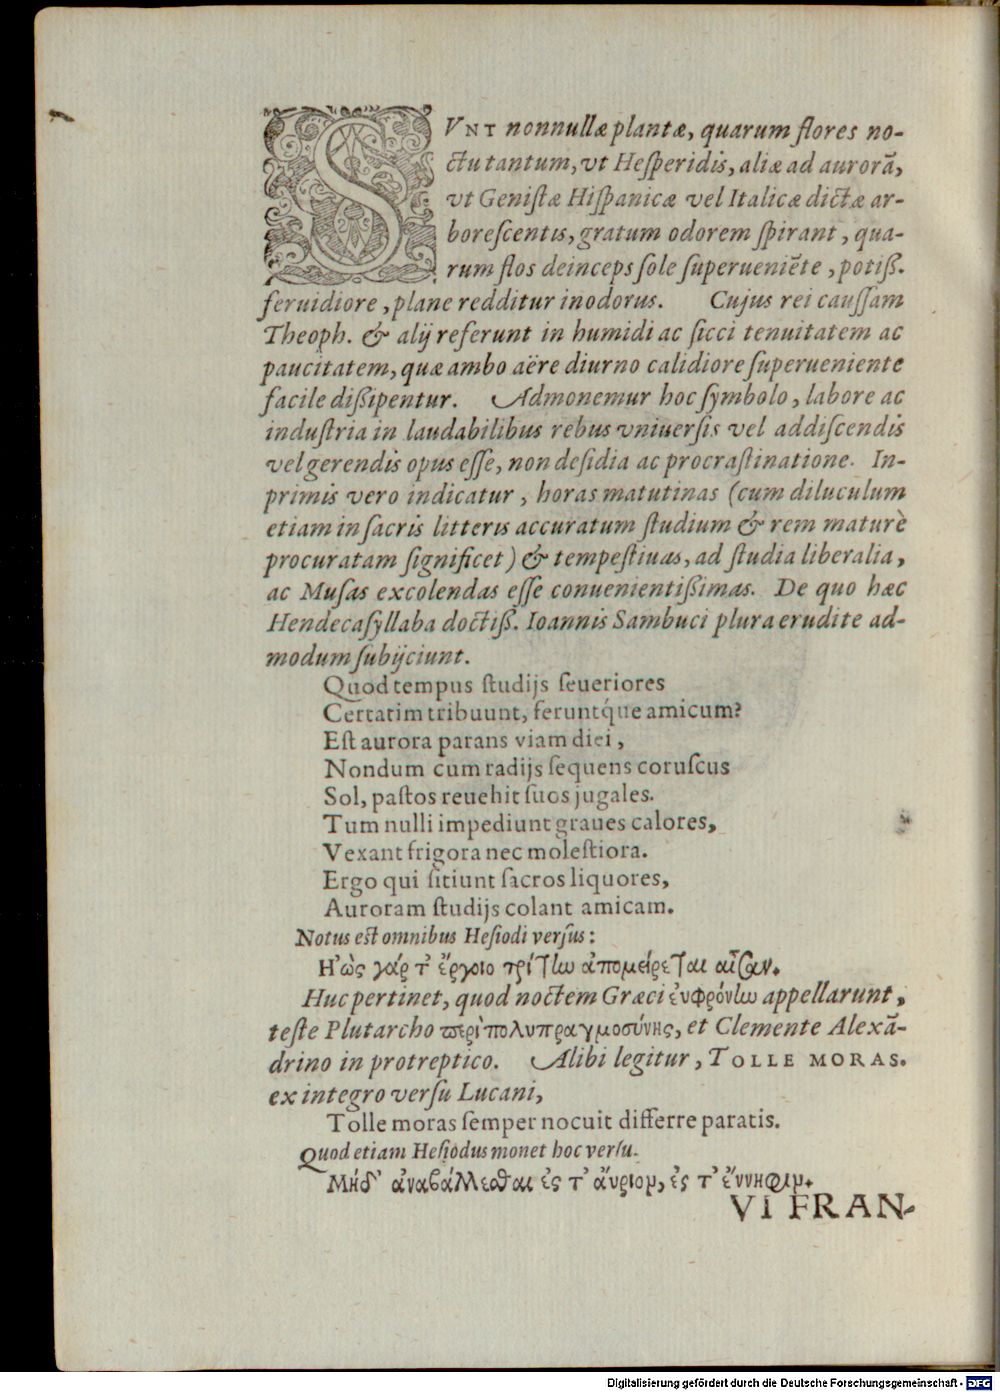 SVNT nonnullæ plantæ, quarum flores no-
ctu tantum, vt Heſperidis, aliæ ad aurorã,
vt Geniſtæ Hiſpanicæ vel Italicæ dictæ ar-
boreſcentis, gratum odorem ſpirant, qua-
rum flos deinceps ſole ſuperueniẽte, potiß.
feruidiore, plane redditur inodorus. Cujus rei cauſſam
Theoph. & alij referunt in humidi ac ſicci tenuitatem ac
paucitatem, quæ ambo aëre diurno calidiore ſuperueniente
facile dißipentur. Admonemur hoc ſymbolo, labore ac
induſtria in laudabilibus rebus vniuerſis vel addiſcendis
vel gerendis opus eſſe, non deſidia ac procraſtinatione. In-
primis vero indicatur, horas matutinas (cum diluculum
etiam in ſacris litteris accuratum ſtudium & rem maturè
procuratam ſignificet) & tempeſtiuas, ad ſtudia liberalia,
ac Muſas excolendas eſſe conuenientißimas. De quo hæc
Hendecaſyllaba doctiß. Ioannis Sambuci plura erudite ad-
modum ſubijciunt.
Quod tempus ſtudijs ſeueriores
Certatim tribuunt, feruntq́ue amicum?
Eſt aurora parans viam diei,
Nondum cum radijs ſequens coruſcus
Sol, paſtos reuehit ſuos jugales.
Tum nulli impediunt graues calores,
Vexant frigora nec moleſtiora.
Ergo qui ſitiunt ſacros liquores,
Auroram ſtudijs colant amicam.
Notus eſt omnibus Heſiodi verſus:
Η᾽ὼς γάρ τ᾽ ἔργοιο τρίτlω ἀπομείρεται αἶσαν.
Huc pertinet, quod noctem Græci ἐυφρόνlω appellarunt,
teſte Plutarcho ϖερὶ πολυπραγμοσύνης, et Clemente Alexã-
drino in protreptico. Alibi legitur, TOLLE MORAS.
ex integro verſu Lucani,
Tolle moras ſemper nocuit differre paratis.
Quod etiam Heſiodus monet hoc verſu.
Μηδ᾽ ἀναβάλλεσθαι ἐς τ᾽ ἄυριον, ἐς τ᾽ ἔννηφιν.
VI FRAN-
Digitalisierung gefördert durch die Deutsche Forschungsgemeinschaft - DFG